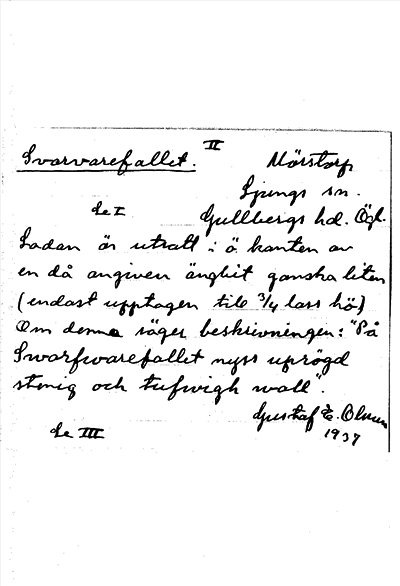 II
Svarvarefallet. Mörstorp
Ljungs sn.
Se I Gullbergs hd. Ögl.
Ladan är utsatt i ö. kanten av
en då angiven ängbit ganska liten
(endast upptagen till 3/4 lass hö)
Om denna säger beskrivningen: "På
Swarfwarefallet nyss uprögd
stenig och tufwigh wall".
Gustaf E. Olsson
1937
Se III